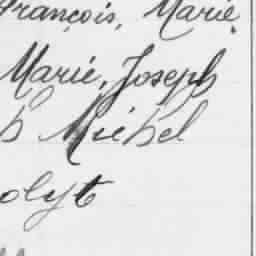 François, Marie
Marie, Joseph
h Michel
olyt